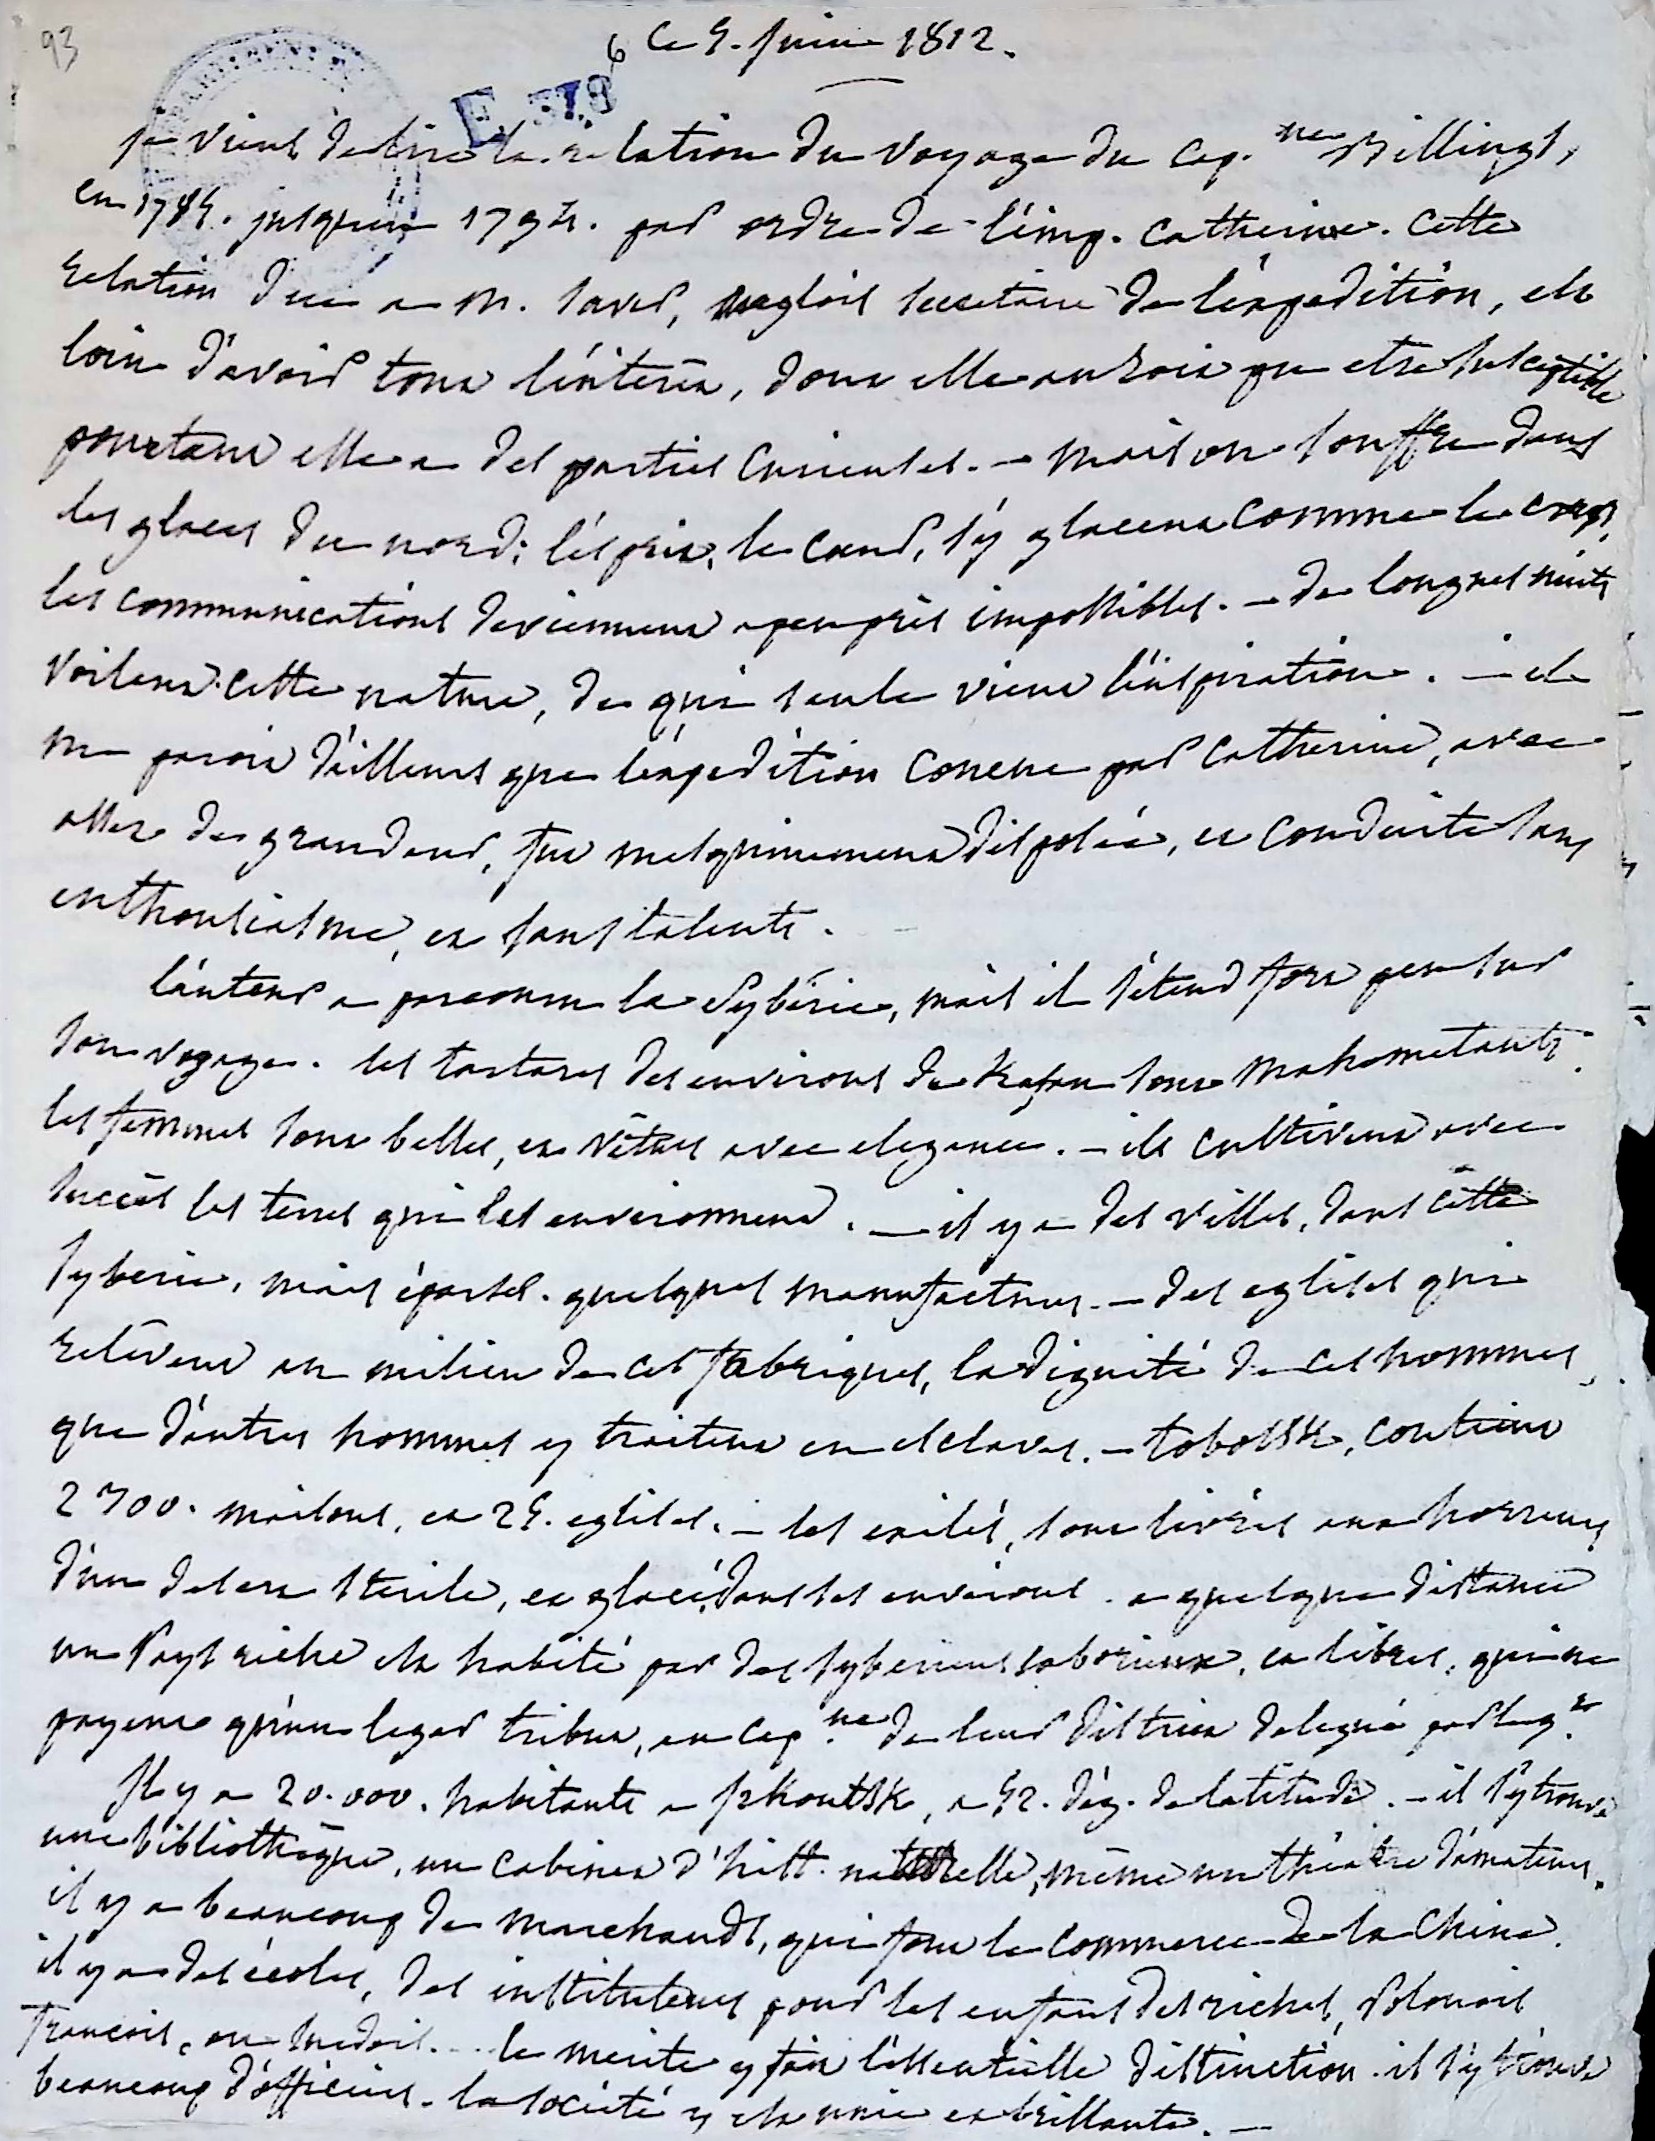 93
6 Ce 5. juin 1812.
E. 378
je viens de lire la relation du voyage du cap.ne Billings,
en 1785. jusqu'en 1794. par ordre de l'imp. Catherine. cette
relation due a M. Saver, anglois secretaire de l'éxpedition, est
loin d'avoir tout l'interêt, dont elle auroit pu etre susceptible
pourtant elle a des parties curieuses. — mais on souffre dans
les glaces du nord; l'ésprit, le cœur, s'y glacent comme le corps,
les communications deviennent apeuprès impossibles. — de longues nuits
voilent cette nature, de qui seule vient l'inspiration. — il
me paroit d'ailleurs que l'éxpedition conçue par Catherine, avec
assez de grandeur, fut mesquinement disposée, et conduite sans
enthousiasme, et sans talents.
l'auteur a parcouru la Sybérie, mais il s'étend fort peu sur
son voyage. les tartares des environs de Kasan sont mahometants.
les femmes sont belles, et vêtues avec elegance. — ils cultivent avec
succès les terres qui les environnent. — il y a des villes, dans cette
Syberie, mais éparses. quelques manufactures. — des eglises qui
relèvent au milieu de ces fabriques, la dignité de ces hommes,
que d'autres hommes y traitent en esclaves. — tobolsk, contient
2700. maisons, et 25. eglises. — les exilés, sont livrés aux horreurs
d'un desert sterile, et glacé, dans ses environs. a quelque distance
un pays riche est habité par des syberiens laborieux, et libres, qui ne
payent qu'un leger tribut, au cap.ne de leur district delegué par le g.r
Il y a 20.000. habitants a Irkoutsk, a 52. dég. de latitude. — il s'y trouve
une bibliothèque, un cabinet d'hist. naturelle, même un théâtre d'amateurs.
il y a beaucoup de marchands, qui font le commerce de la Chine.
il y a des écoles, des instituteurs pour les enfans des riches, Polonois
françois, ou suedois... le merite y fait l'éssentielle distinction. il s'y trouve
beaucoup d'officiers. la société y est unie et brillante. —